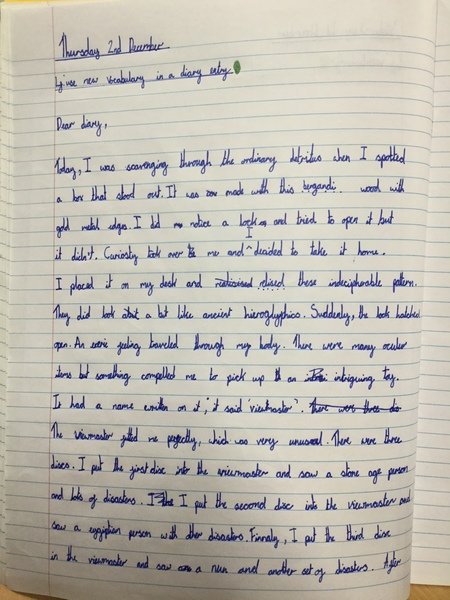 Thursday 2nd December
L.I: use new vocabulary in a diary entry.
Dear diary,
Today, I was scavenging through the ordinary detritus when I spotted
a box that stood out. It was made with this bergandi wood with
gold metal edges. I did notice a lock and tried to open it but
it didn't. Curiosty took over me and I decided to take it home.
I placed it on my desk and relised these indecipherable pattern.
They did look a bit like ancient hieroglyphics. Suddenly, the lock hatched
open. An eerie feeling traveled through my body. There were many
items but something compelled me to pick up an intriguing toy.
It had a name written on it; it said 'viewmaster'. There were three dis
The viewmaster fitted me perfectly, which was very unusual. There were three
discs. I put the first disc into the viewmaster and saw a stone age person
and lots of disasters. I put the second disc into the viewmaster and
saw a egyiptian person with other disasters. Finnaly, I put the third disc
in the viewmaster and saw a nun and another set of disasters. After